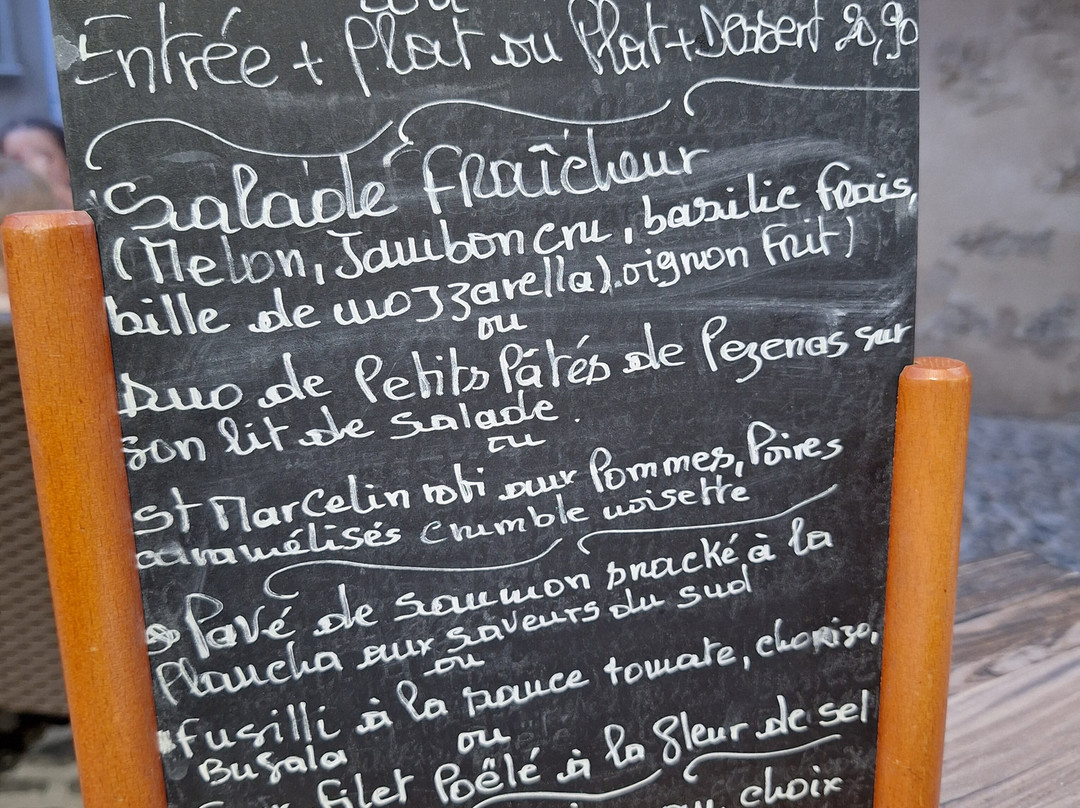 ou
Entrée + Plat ou Plat + Dessert 20,90
Salade fraîcheur
(Melon, Jambon cru, basilic frais,
bille de mozzarella), oignon frit)
ou
Duo de Petits Pâtés de Pezenas sur
son lit de salade.
ou
St Marcelin roti aux Pommes, Poires
caramélisés crumble noisette
Pavé de saumon snacké à la
Plancha aux saveurs du sud
ou
Fusilli à la sauce tomate, chorizo,
Bufala
ou
Filet Poêlé à la fleur de sel
choix